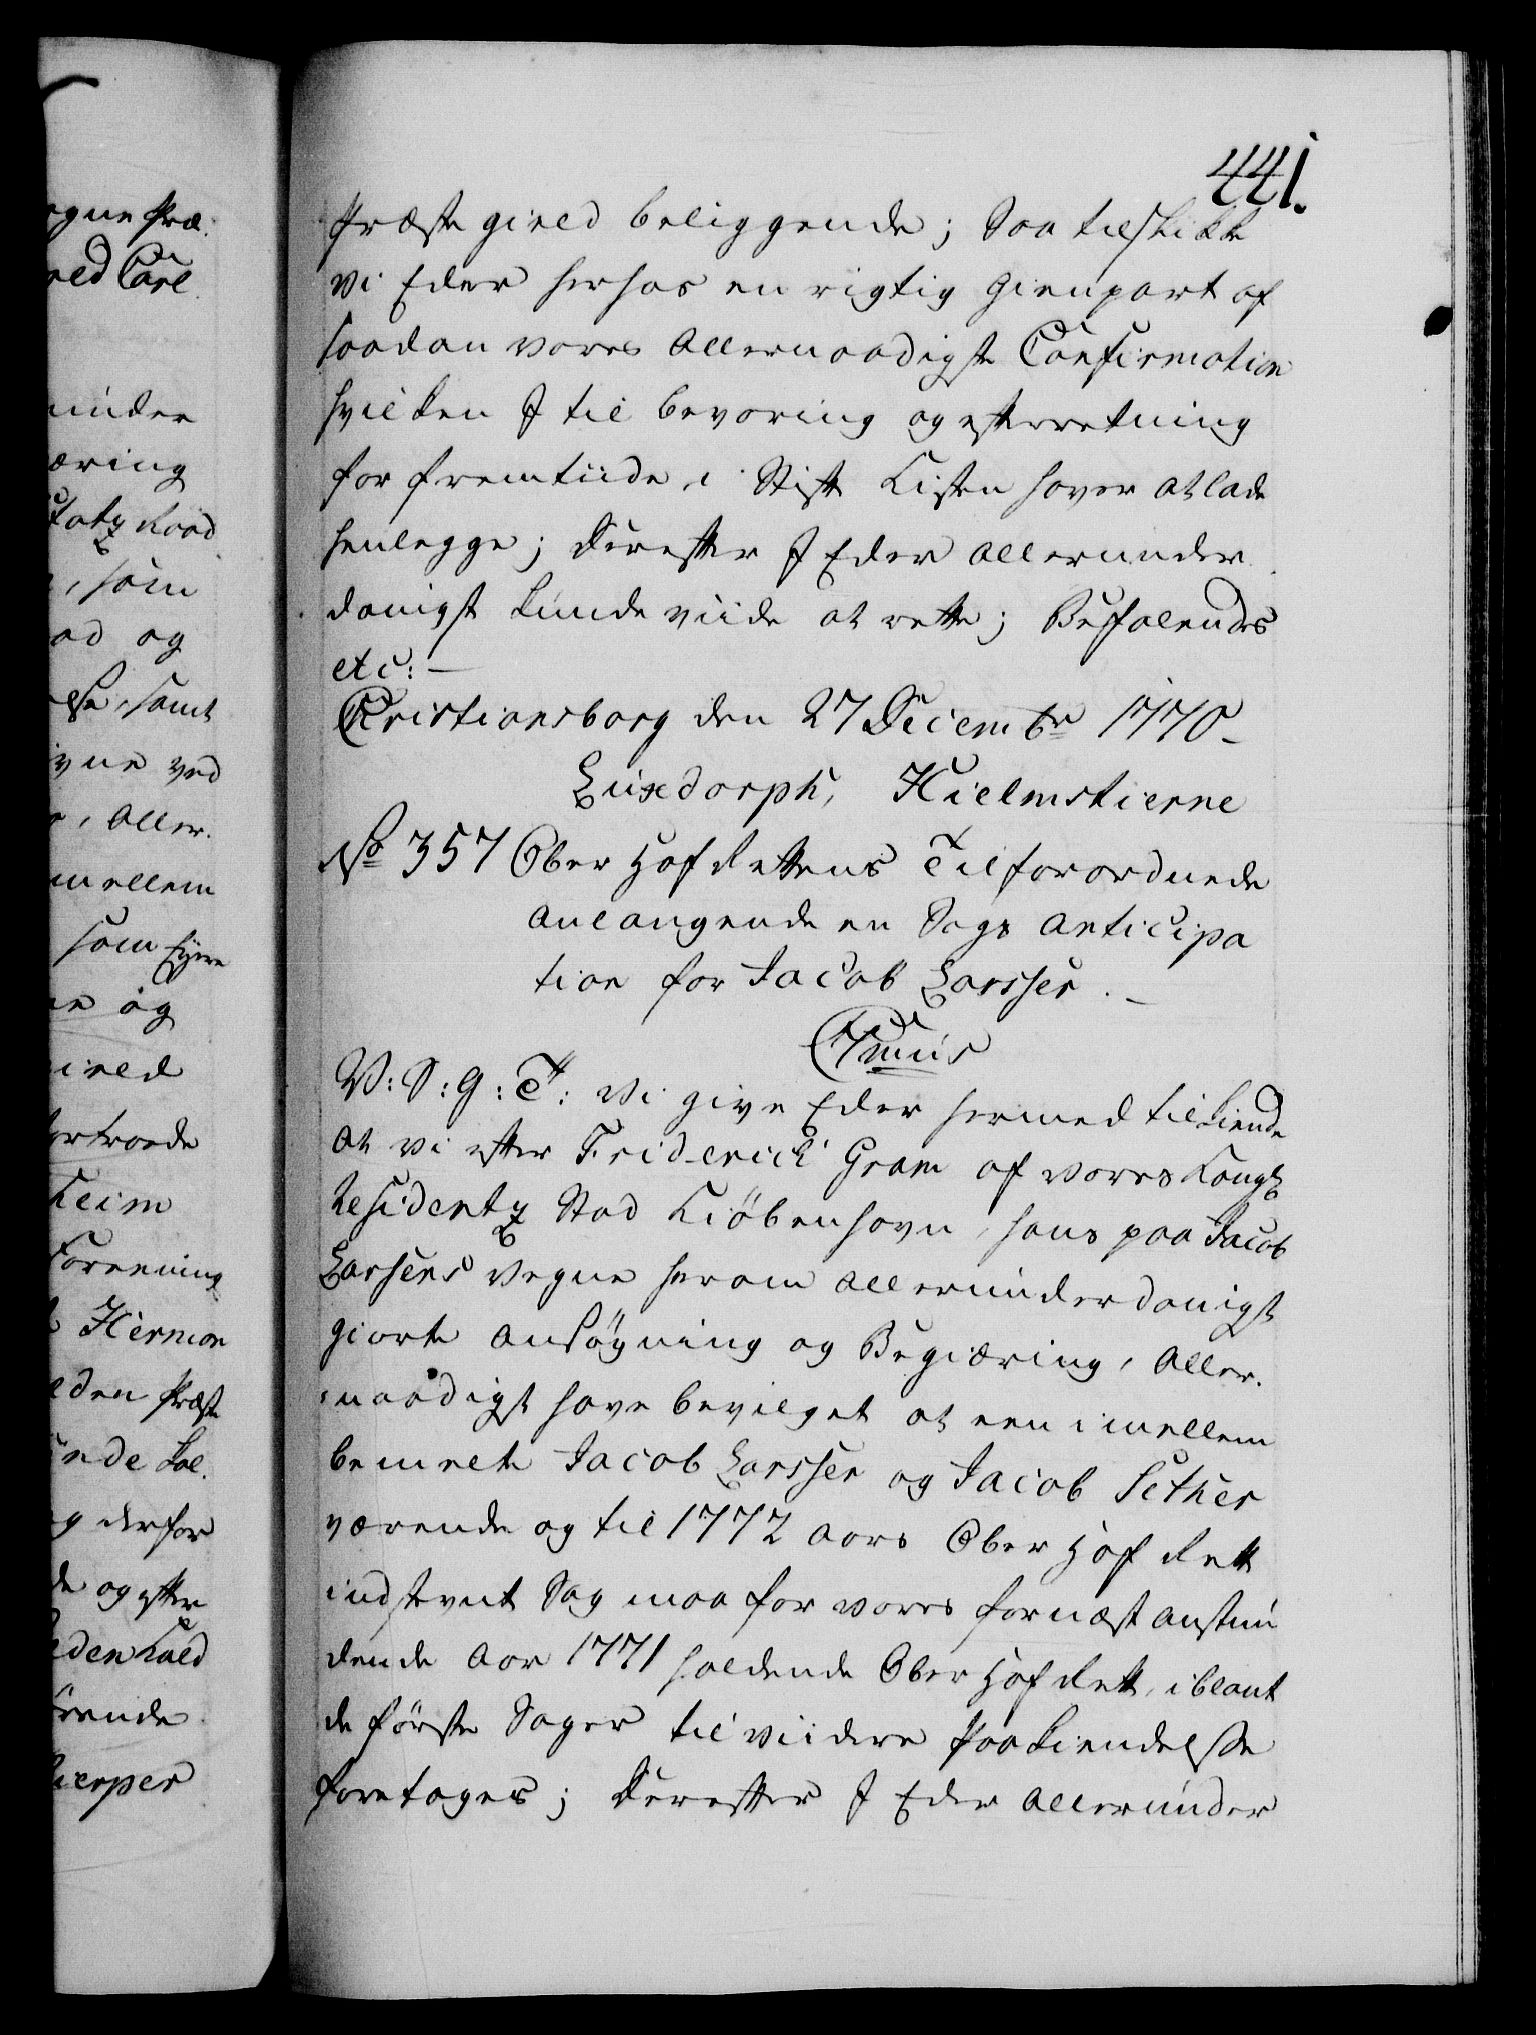 441.
Præstegield beliggende; Saa tilskikke
Vi Eder herhos en rigtig Gienpart af
saadan vores Allernaadigste Confirmation
hvilken I til bevaring og efterretning
for fremtiide, i Stift Kisten haver at lade
henlegge; Derefter I Eder allerunder
danigst kunde viide at rette; Befalendes
etc: —
Christiansborg den 27 Decembr 1770.
Luxdorph, Hielmstierne
No 357 Ober Hof Rettens Tilforordnede
Anlangende en Sags Anticipa
tion for Jacob Larssen. —
C 7mus
V: S: G: T: Vi give Eder hermed tilkiende
at vi efter Friderich Gram af vores Kongl
Residentz Stad Kiöbenhavn, hans paa Jacob
Larsens Vegne herom allerunderdanigst
giorte Ansögning og Begiæring, Aller-
naadigst have bevilget at een imellem
bemelte Jacob Larssen og Jacob Sether
værende og til 1772 Aars Ober Hof Rett
indstevnt Sag maa for vores fornæst anstun
dende Aar 1771 holdende Ober Hof Rett, iblant
de förste Sager til viidere Paakiendelse
foretages; Derefter I Eder allerunder
egne Præ:
ned Carl
under
æring
Raad
, som
ad og
samt
vne ved
, Aller-
mellem
som Eyere
og
ield
Foreening
Herman
den Præste
Kal-
g derfor
de og efter
eden Kald
ørende